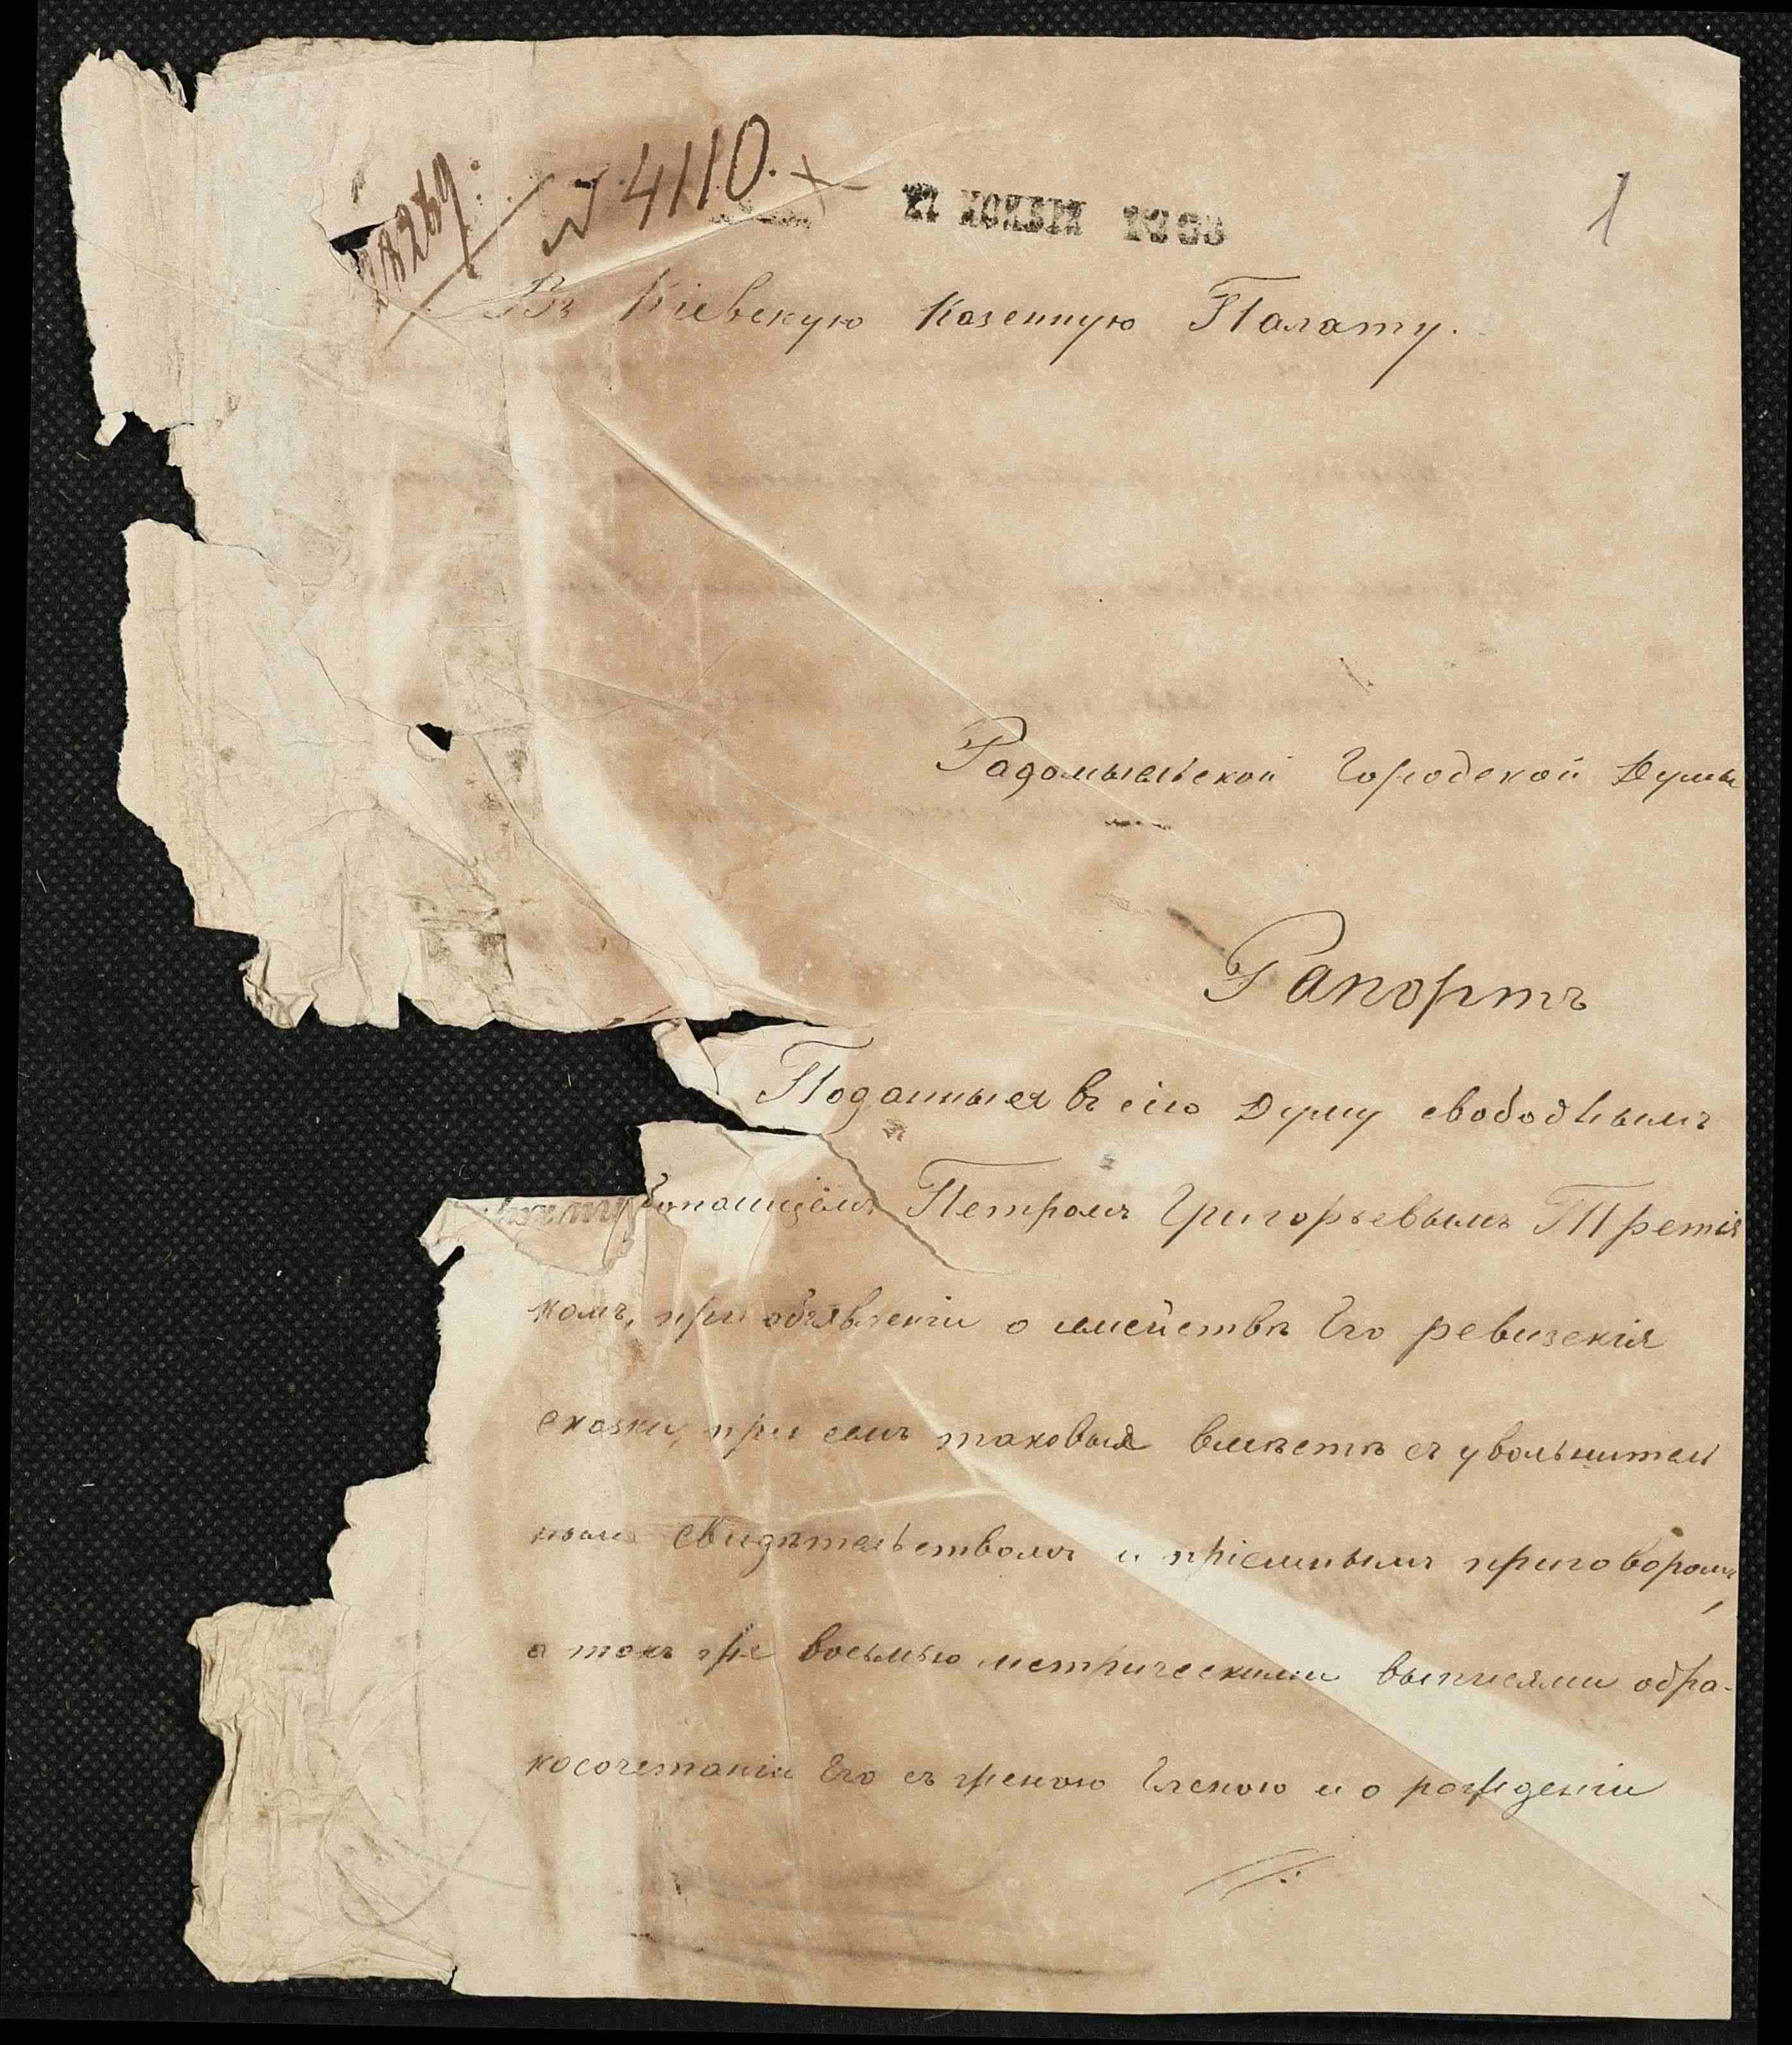 18269.
№ 4110.
27 НОЯБРЯ
1
Въ Кіевскую Казенную Палату.
Радомысльской Городской Думы
Рапортъ
Поданныя въ сію Думу свободнымъ
Петромъ Григорьевымъ Третія
комъ, при объявленіи о семействѣ Его ревизскія
сказки, при семъ таковыя вмѣстѣ съ увольнитель
нымъ свидѣтельствомъ и пріемнымъ приговоромъ,
а такъ же восьмью метрическими выписями обра-
косочетаніи Его съ женою Еленою и о рожденіи